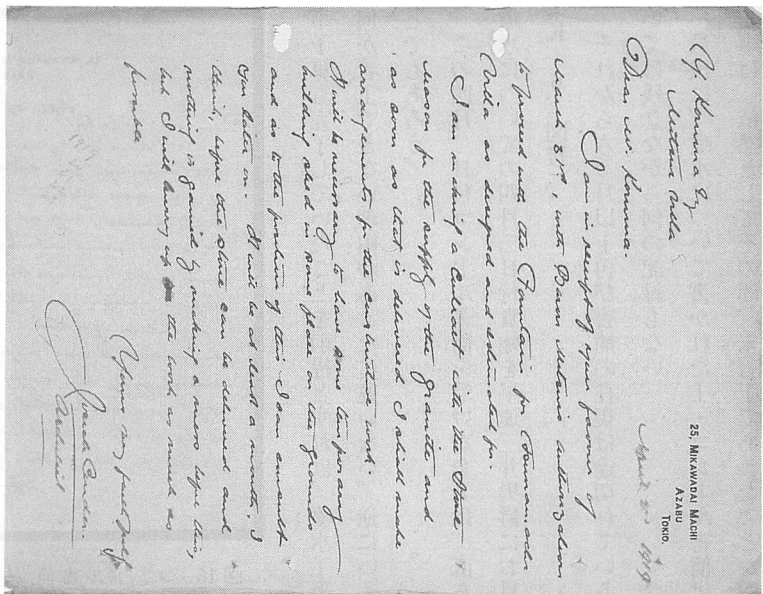 25, MIKAWADAI MACHI
AZABU
TOKIO.
April 2nd 1919
Y. Konuma Esq
Dear Mr Konuma.
I am in receipt of your favour of
March 31st, with Baron authorization
to proceed with the Fountain for
Villa as designed and estimated for.
I am making a Contract with the Stone
mason for the supply of the granite and
as soon as that is delivered I shall make
arrangements for the construction work.
It will be necessary to have some temporary
building shed in some place in the grounds
and as to the position of this I can consult
you later on. It will be at least a month, I
think, before the stone can be delivered and
nothing is gained by making a mess before this,
but I will hurry up the work as much as
possible
Yours very faithfully
Josiah Conder.
Architect